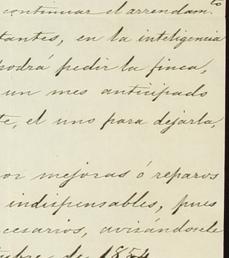 continuar el arrendam.to
tantes, en la inteligencia
podrá pedir la finca,
un mes anticipado
te, el uno para dejarla,
or mejoras ó reparos
indispensables, pues
cesarios, avisándosele
tubre de 1854